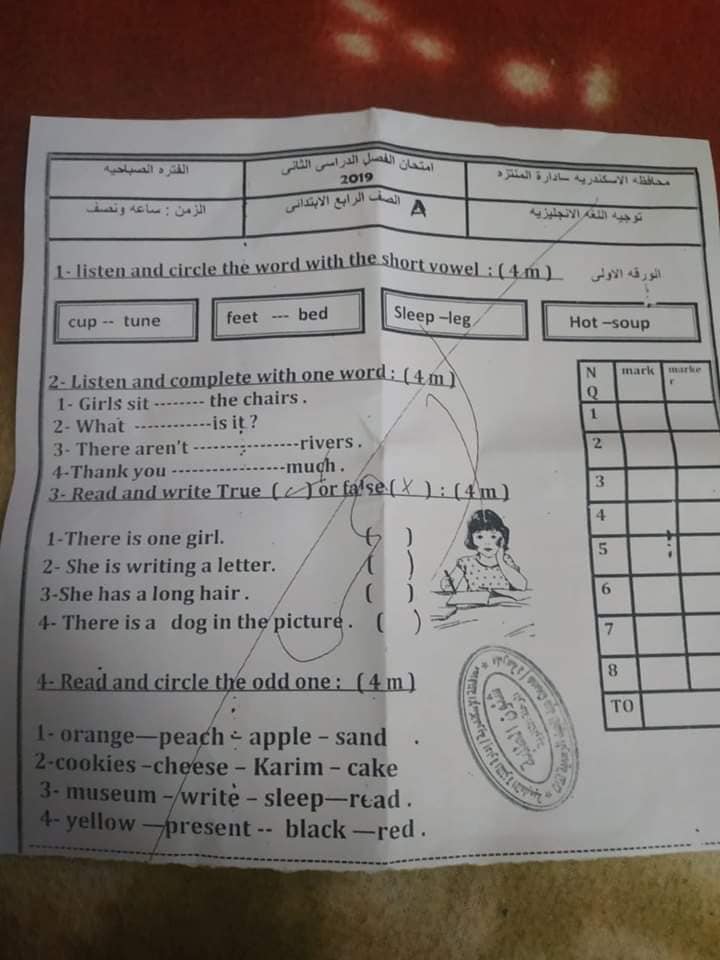 محافظه الاسكندريه سادارة المنتزه
امتحان الفصل الدراسى الثانى
2019
الفتره الصباحيه
توجيه اللغه الانجليزيه
الصف الرابع الابتدائى A
الزمن : ساعه ونصف
الورقه الاولى
1- listen and circle the word with the short vowel : ( 4 m )
cup -- tune
feet --- bed
Sleep –leg
Hot –soup
2- Listen and complete with one word : ( 4 m )
1- Girls sit -------- the chairs .
2- What ------------is it ?
3- There aren't ----------------rivers .
4-Thank you -----------------much .
3- Read and write True ( ✓ ) or false ( X ) : ( 4 m )
1-There is one girl. ( )
2- She is writing a letter. ( )
3-She has a long hair . ( )
4- There is a dog in the picture . ( )
4- Read and circle the odd one : ( 4 m )
1- orange—peach - apple – sand .
2-cookies –cheese – Karim – cake
3- museum – write – sleep—read .
4- yellow —present -- black —red .
N Q mark marker
1
2
3
4
5
6
7
8
TO